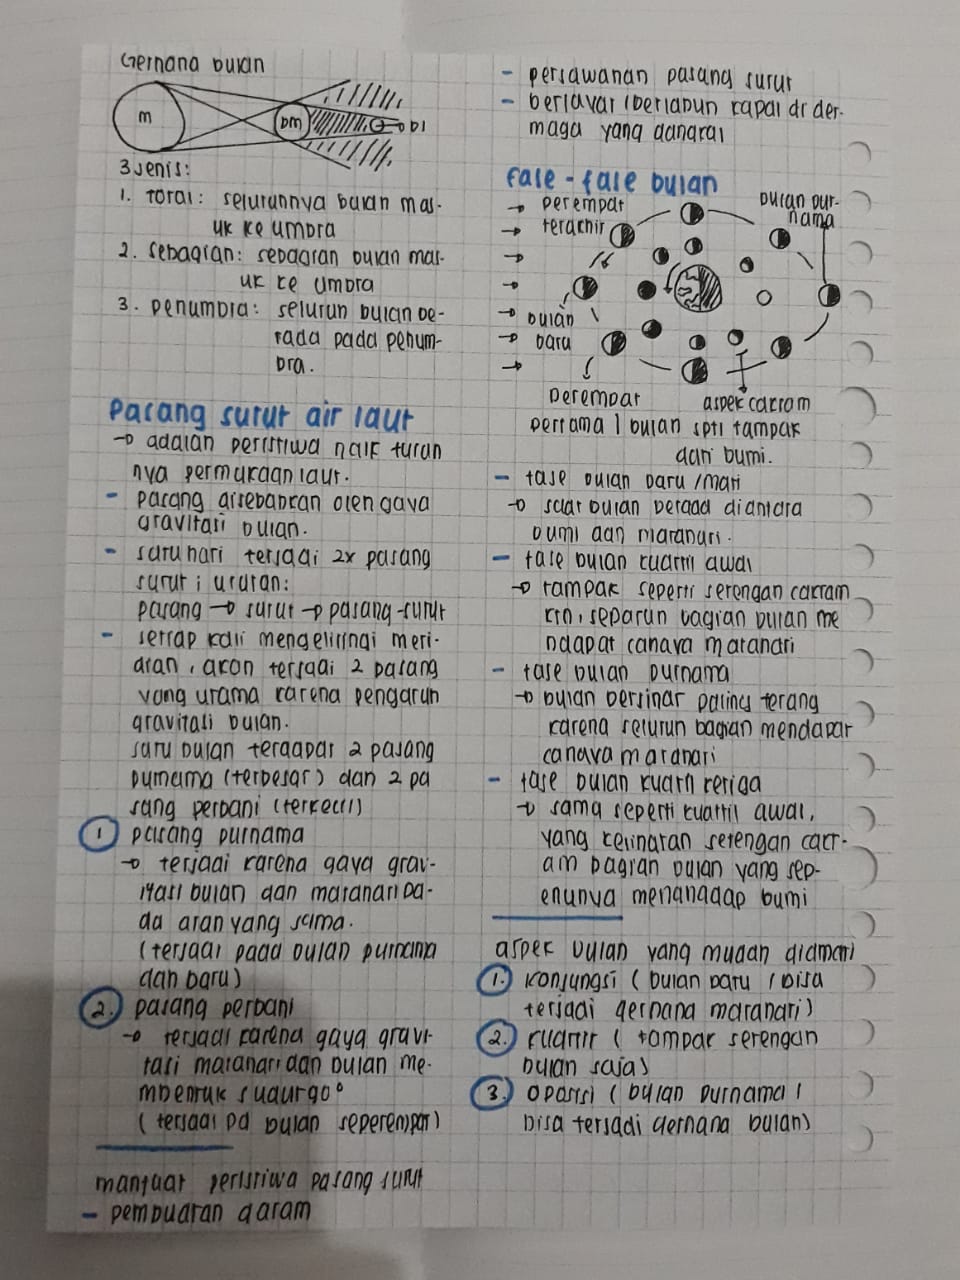 Gerhana bulan
m
bm
bl
3 jenis:
1. Total: seluruhnya bulan mas-
uk ke umbra
2. sebagian: sebagian bulan mas-
uk ke umbra
3. penumbra: seluruh bulan be-
rada pada penum-
bra.
Pasang surut air laut
→ adalah peristiwa naik turun
nya permukaan laut.
- pasang disebabkan oleh gaya
gravitasi bulan.
- satu hari terjadi 2x pasang
surut ; urutan:
pasang → surut → pasang - surut
- setiap kali mengelilingi meri-
dian, akan terjadi 2 pasang
yang utama karena pengaruh
gravitasi bulan.
satu bulan terdapat 2 pasang
purnama (terbesar) dan 2 pa
sang perbani (terkecil)
1 pasang purnama
→ terjadi karena gaya grav-
itasi bulan dan matahari pa-
da arah yang sama.
(terjadi pada bulan purnama
dan baru)
2. pasang perbani
→ terjadi karena gaya gravi-
tasi matahari dan bulan me-
mbentuk sudut 90°
(terjadi pd bulan seperempat)
manfaat peristiwa pasang surut
- pembuatan garam
- persawahan pasang surut
- berlayar / berlabuh kapal di der-
maga yang dangkal
Fase - fase bulan
→ perempat
→ terakhir
→
→
→ bulan
→ baru
→
bulan pur-
nama
perempat
pertama
aspek cakram
bulan spti tampak
dari bumi.
- fase bulan baru / mati
→ saat bulan berada diantara
bumi dan matahari.
- fase bulan kuartil awal
→ tampak seperti setengah cakram
krn, separuh bagian bulan me
ndapat cahaya matahari
- fase bulan purnama
→ bulan bersinar paling terang
karena seluruh bagian mendapat
cahaya matahari
- fase bulan kuartil ketiga
→ sama seperti kuartil awal,
yang kelihatan setengah cakr-
am bagian bulan yang sep-
enuhya menghadap bumi
aspek bulan yang mudah diamati
1. konjungsi (bulan baru / bisa
terjadi gerhana matahari)
2. kuartir (tampak setengah
bulan saja)
3. oposisi (bulan purnama /
bisa terjadi gerhana bulan)